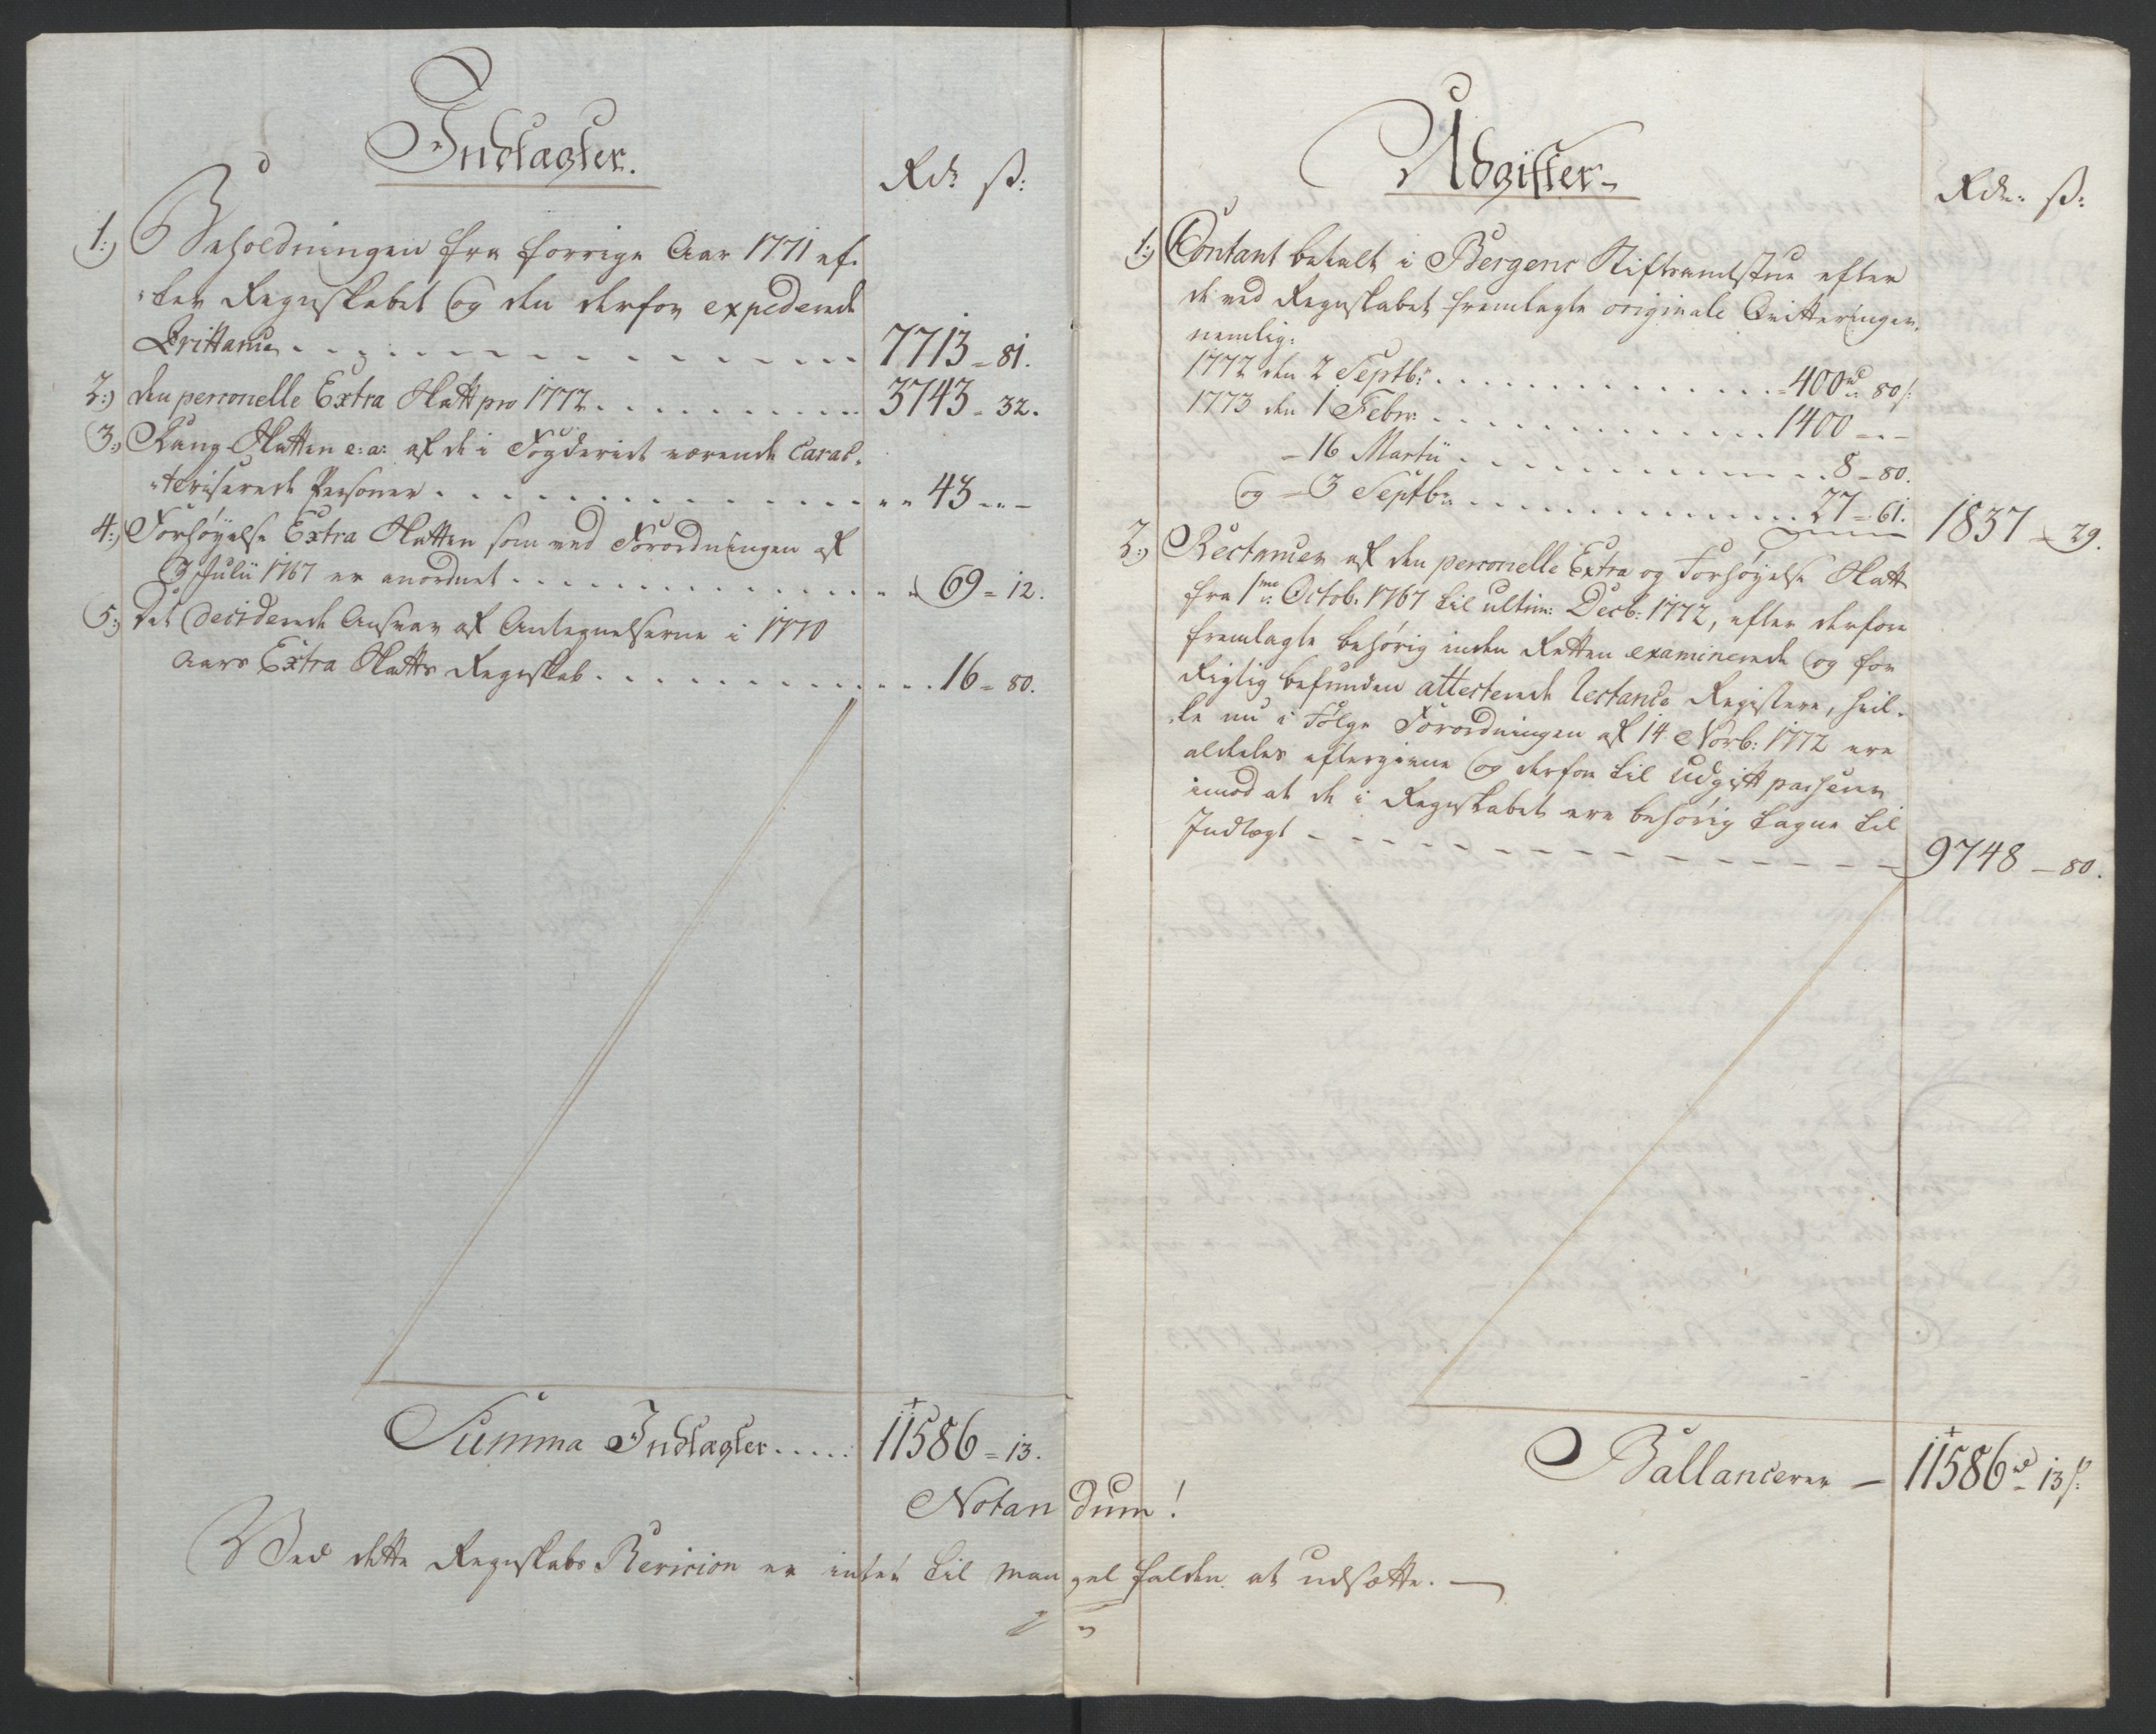 Indtægter.
Rd: ß:
1:) Beholdningen fra forrige Aar 1771 ef-
ter Regnskabet og den derfor expederede
Qvittance 7713 = 81.
2:) den personelle Extra Skatt pro 1772 3743 = 32.
3:) Rang-Skatten e: a: af de i Fogderiet værende Carac-
teriserede Personer 43 = -
4:) Forhøyelse Extra Skatten som ved Forordningen af
3 Julii 1767 er anordnet 69 = 12.
5:) Det Deciderede Ansvar af Antegnelserne i 1770
Aars Extra Skatts Regnskab 16 = 80.
Summa Indtægter 11586 = 13.
Udgifter
Rdr: ß:
1:) Contant betalt i Bergens Stiftsamtstue efter
de ved Regnskabet fremlagte originale Qvitteringer,
nemlig:
1772 den 2 Septbr: 400 rd 80 ß:
1773 den 1 Febr: 1400 = -
- 16 Martii 8 = 80.
og - 3 Septbr: 27 = 61. 1837 = 29.
2:) Restancer af den personelle Extra og Forhøyelse Skatt
fra 1me Octob: 1767 til ultim: Decb: 1772, efter derfore
fremlagte behørig inden Retten examinerede og for
Rigtig befunden attesterede Restance Registere, hvil-
ke nu i Følge Forordningen af 14 Novb: 1772 ere
aldeles eftergivne og derfor til Udgift passerer
imod at de i Regnskabet ere behørig tagne til
Indtægt 9748 - 80.
Ballancerer - 11586 rd 13 ß:
Notandum!
Ved dette Regnskabs Revision er intet til Mangel falden at udsætte. -